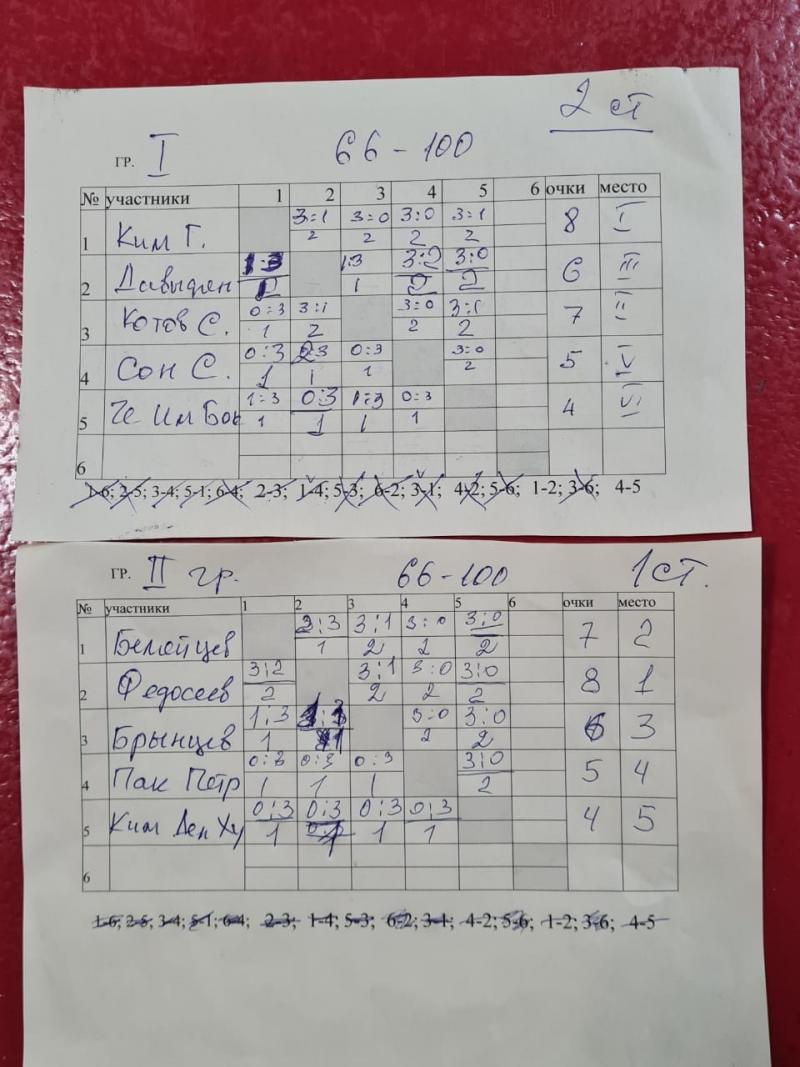 2 ст
ГР. I 66-100
№ участники 1 2 3 4 5 6 очки место
3:1 3:0 3:0 3:1
1 Ким Г. 2 2 2 2 8 I
1:3 1:3 3:2 3:0
2 Давыден 1 2 2 6 III
0:3 3:1 3:0 3:1
3 Котов С. 1 2 2 2 7 II
0:3 2:3 0:3 3:0
4 Сон С. 1 1 1 2 5
1:3 0:3 1:3 0:3
5 Че Им Бок 1 1 1 1 4
6
1-6; 2-5; 3-4; 5-1; 6-4; 2-3; 1-4; 5-3; 6-2; 3-1; 4-2; 5-6; 1-2; 3-6; 4-5
ГР. II гр. 66-100 1 ст.
№ участники 1 2 3 4 5 6 очки место
2:3 3:1 3:0 3:0
1 Белейцев 1 2 2 2 7 2
3:2 3:1 3:0 3:0
2 Федосеев 2 2 2 2 8 1
1:3 1:3 3:0 3:0
3 Брынцев 1 1 2 2 6 3
0:3 0:3 0:3 3:0
4 Пак Петр 1 1 1 2 5 4
0:3 0:3 0:3 0:3
5 Ким Ден Ху 1 1 1 1 4 5
6
1-6; 2-5; 3-4; 5-1; 6-4; 2-3; 1-4; 5-3; 6-2; 3-1; 4-2; 5-6; 1-2; 3-6; 4-5